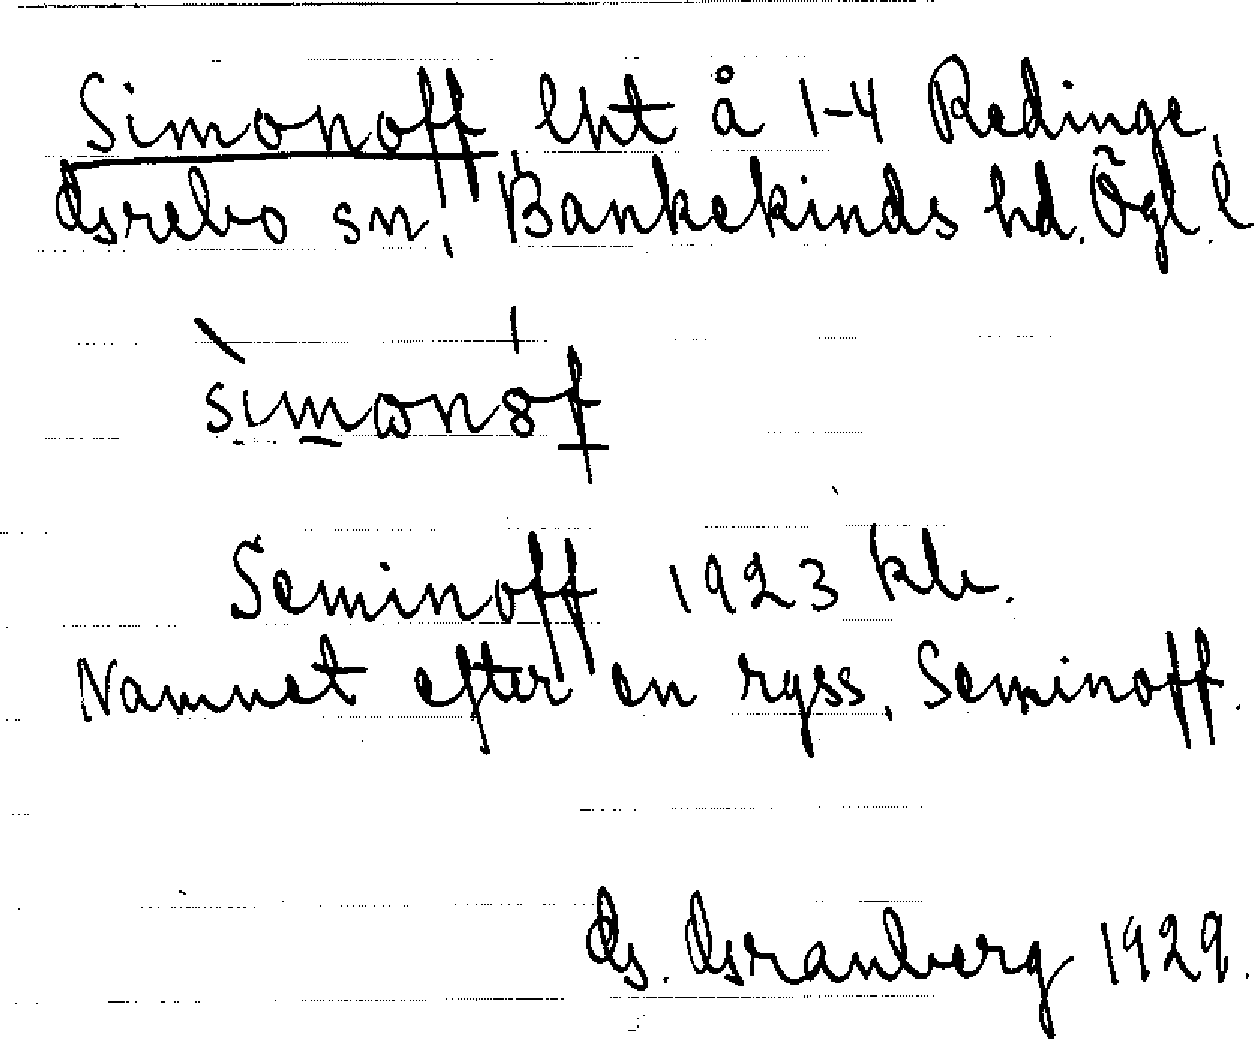 Simonoff, lht å 1-4 Redinge,
Grebo sn, Bankekinds hd. Ögl. l
simonof
Seminoff 1923 kb.
Namnet efter en ryss, Seminoff.
G. Granberg 1929.